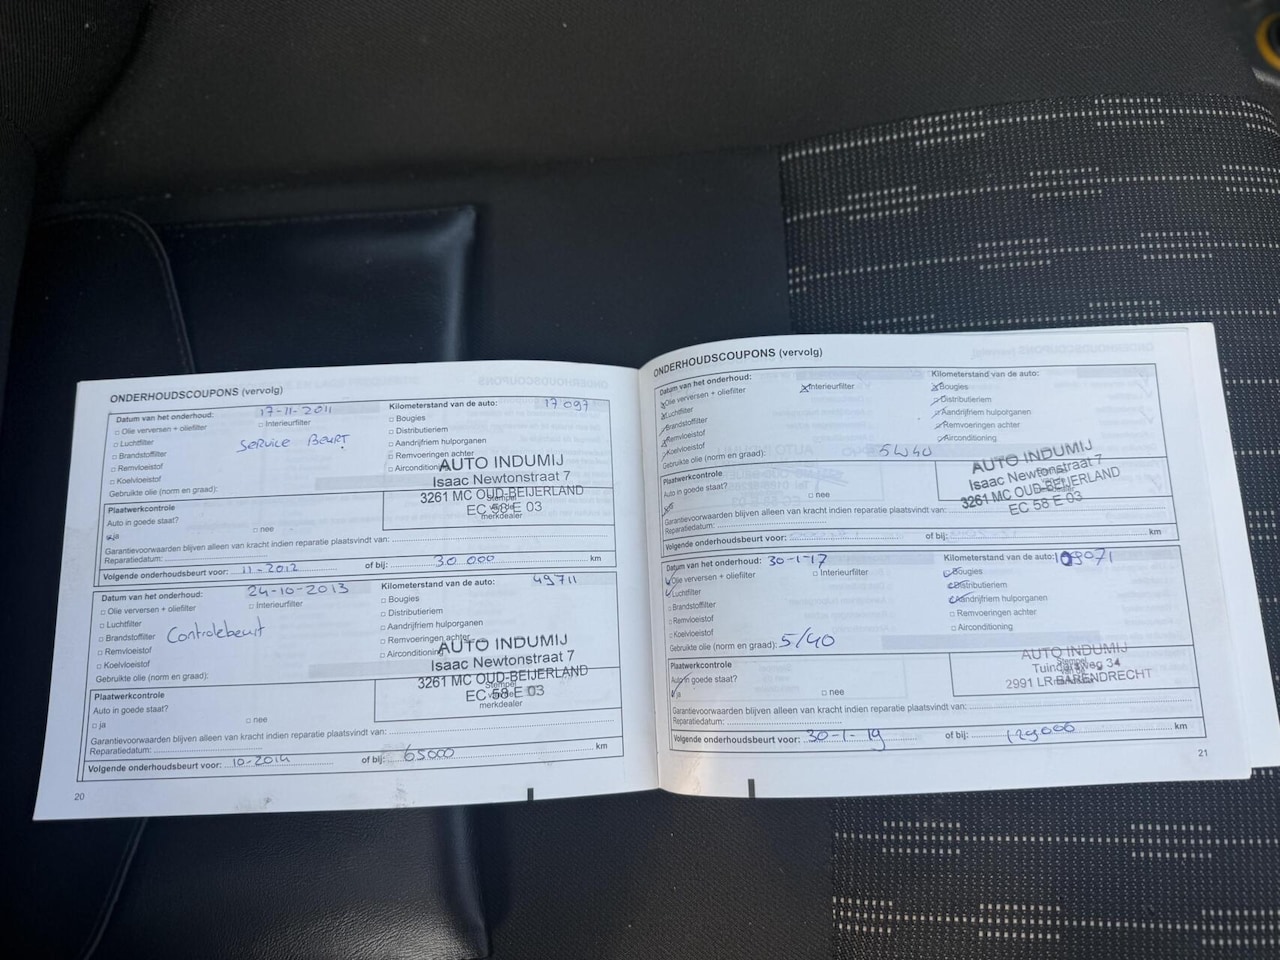 ONDERHOUDSCOUPONS (vervolg)
Datum van het onderhoud: 17-11-2011
Kilometerstand van de auto: 17097
□ Olie verversen + oliefilter □ Interieurfilter
□ Bougies
□ Luchtfilter
□ Distributieriem
□ Brandstoffilter
□ Aandrijfriem hulporganen
□ Remvloeistof
□ Remvoeringen achter
□ Koelvloeistof
□ Airconditioning
SERVICE BEURT
Gebruikte olie (norm en graad):
AUTO INDUMIJ
Isaac Newtonstraat 7
3261 MC OUD-BEIJERLAND
EC 58 E 03
Stempel
merkdealer
Plaatwerkcontrole
Auto in goede staat?
ja □ nee
Garantievoorwaarden blijven alleen van kracht indien reparatie plaatsvindt van:
Reparatiedatum:
Volgende onderhoudsbeurt voor: 11-2012 of bij: 30 000 km
Datum van het onderhoud: 24-10-2013
Kilometerstand van de auto: 49711
□ Olie verversen + oliefilter □ Interieurfilter
□ Bougies
□ Luchtfilter
□ Distributieriem
□ Brandstoffilter
□ Aandrijfriem hulporganen
□ Remvloeistof
□ Remvoeringen achter
□ Koelvloeistof
□ Airconditioning
Controlebeurt
Gebruikte olie (norm en graad):
AUTO INDUMIJ
Isaac Newtonstraat 7
3261 MC OUD-BEIJERLAND
EC 58 E 03
Stempel
merkdealer
Plaatwerkcontrole
Auto in goede staat?
□ ja □ nee
Garantievoorwaarden blijven alleen van kracht indien reparatie plaatsvindt van:
Reparatiedatum:
Volgende onderhoudsbeurt voor: 10-2014 of bij: 65000 km
20
ONDERHOUDSCOUPONS (vervolg)
Datum van het onderhoud:
Kilometerstand van de auto:
Olie verversen + oliefilter Interieurfilter
Bougies
Luchtfilter
Distributieriem
Brandstoffilter
Aandrijfriem hulporganen
Remvloeistof
Remvoeringen achter
Koelvloeistof
Airconditioning
Gebruikte olie (norm en graad): 5W40
AUTO INDUMIJ
Isaac Newtonstraat 7
3261 MC OUD-BEIJERLAND
EC 58 E 03
Plaatwerkcontrole
Auto in goede staat?
□ nee
Garantievoorwaarden blijven alleen van kracht indien reparatie plaatsvindt van:
Reparatiedatum:
Volgende onderhoudsbeurt voor: of bij: km
Datum van het onderhoud: 30-1-17
Kilometerstand van de auto: 109071
Olie verversen + oliefilter □ Interieurfilter
Bougies
Luchtfilter
Distributieriem
□ Brandstoffilter
Aandrijfriem hulporganen
□ Remvloeistof
□ Remvoeringen achter
□ Koelvloeistof
□ Airconditioning
Gebruikte olie (norm en graad): 5/40
AUTO INDUMIJ
Tuindersweg 34
2991 LR BARENDRECHT
Plaatwerkcontrole
Auto in goede staat?
ja □ nee
Garantievoorwaarden blijven alleen van kracht indien reparatie plaatsvindt van:
Reparatiedatum:
Volgende onderhoudsbeurt voor: 30-1-19 of bij: 129000 km
21